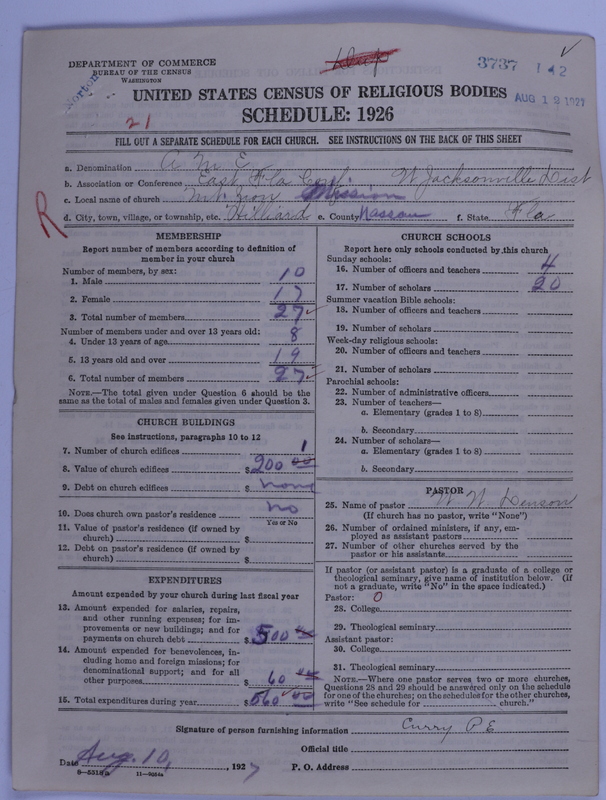 DEPARTMENT OF COMMERCE
BUREAU OF THE CENSUS
WASHINGTON
3737 142
AUG 19 1927
Norton
UNITED STATES CENSUS OF RELIGIOUS BODIES
21
SCHEDULE: 1926
FILL OUT A SEPARATE SCHEDULE FOR EACH CHURCH. SEE INSTRUCTIONS ON THE BACK OF THIS SHEET
R
a. Denomination A M E
b. Association or Conference East Fla Conf. W Jacksonville Dist
c. Local name of church Mt Zion Mission
d. City, town, village, or township, etc. Hilliard e. County Nassau f. State Fla
MEMBERSHIP
Report number of members according to definition of member in your church
Number of members, by sex:
1. Male 10
2. Female 17
3. Total number of members 27
Number of members under and over 13 years old:
4. Under 13 years of age 8
5. 13 years old and over 19
6. Total number of members 27
NOTE.—The total given under Question 6 should be the same as the total of males and females given under Question 3.
CHURCH BUILDINGS
See instructions, paragraphs 10 to 12
7. Number of church edifices 1
8. Value of church edifices $ 200 00
9. Debt on church edifices $ none
10. Does church own pastor's residence no
Yes or No
11. Value of pastor's residence (if owned by church) $
12. Debt on pastor's residence (if owned by church) $
EXPENDITURES
Amount expended by your church during last fiscal year
13. Amount expended for salaries, repairs, and other running expenses; for improvements or new buildings; and for payments on church debt $ 500
14. Amount expended for benevolences, including home and foreign missions; for denominational support; and for all other purposes $ 60
15. Total expenditures during year $ 560 00
CHURCH SCHOOLS
Report here only schools conducted by this church
Sunday schools:
16. Number of officers and teachers 4
17. Number of scholars 20
Summer vacation Bible schools:
18. Number of officers and teachers
19. Number of scholars
Week-day religious schools:
20. Number of officers and teachers
21. Number of scholars
Parochial schools:
22. Number of administrative officers
23. Number of teachers—
a. Elementary (grades 1 to 8)
b. Secondary
24. Number of scholars—
a. Elementary (grades 1 to 8)
b. Secondary
PASTOR
25. Name of pastor W. W. Denson
(If church has no pastor, write "None")
26. Number of ordained ministers, if any, employed as assistant pastors
27. Number of other churches served by the pastor or his assistants
If pastor (or assistant pastor) is a graduate of a college or theological seminary, give name of institution below. (If not a graduate, write "No" in the space indicated.)
Pastor: 0
28. College
29. Theological seminary
Assistant pastor:
30. College
31. Theological seminary
NOTE.—Where one pastor serves two or more churches, Questions 28 and 29 should be answered only on the schedule for one of the churches; on the schedules for the other churches, write "See schedule for church."
Signature of person furnishing information Curry P E
Official title
Date Aug. 10, 1927 P. O. Address
8—5318a 11—9084a